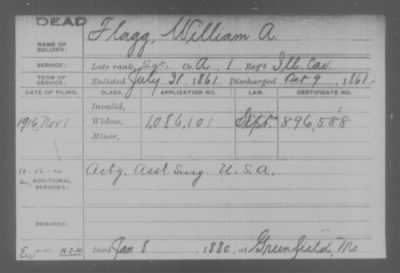 DEAD
NAME OF SOLDIER: Flagg, William A.
SERVICE: Late rank, Sgt. Co. A, 1 Reg't Ill. Cav.
TERM OF SERVICE: Enlisted July 31, 1861 Discharged Oct 9, 1861.
DATE OF FILING. CLASS. APPLICATION NO. LAW. CERTIFICATE NO.
Invalid,
1916, Nov 1 Widow, 1,086,101 Sept. 896,588
Minor,
ADDITIONAL SERVICES: Actg. Asst. Surg. U.S.A.
REMARKS:
Died Jan 8, 1880, at Greenfield, Mo